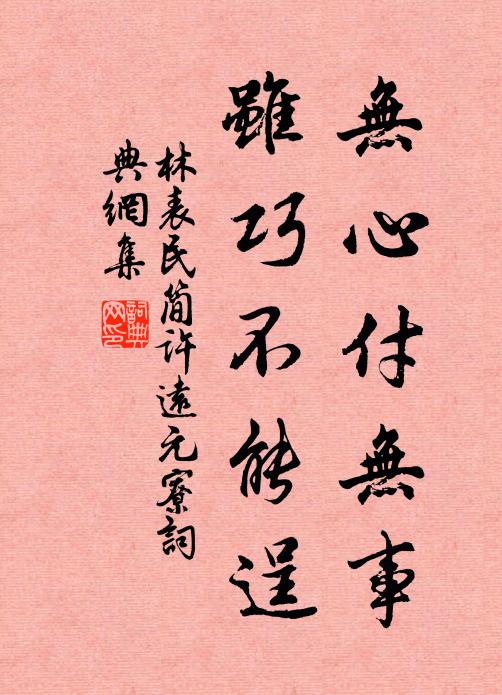 無心付無事
雖巧不能逞
林表民簡許遠元寮詞
典網集
詞典網印